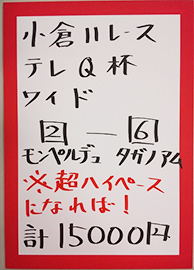 小倉11レース
テレQ杯
ワイド
2 - 6
モンペルデュ タガノアム
※超ハイペース
になれば!
計15000円